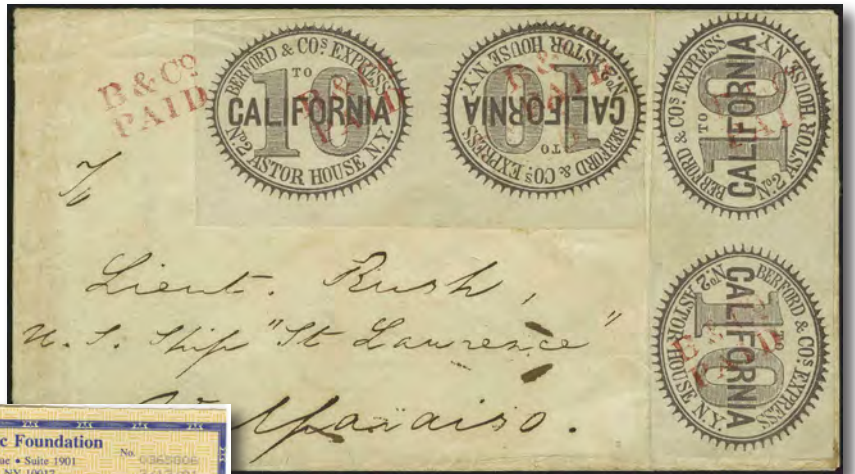 B & Co
PAID
BERFORD & COS EXPRESS
TO
10
CALIFORNIA
No. 2 ASTOR HOUSE N.Y.
B & Co
PAID
BERFORD & COS EXPRESS
TO
10
CALIFORNIA
No. 2 ASTOR HOUSE N.Y.
B &
PAID
BERFORD & COS EXPRESS
TO
10
CALIFORNIA
No. 2 ASTOR HOUSE N.Y.
PAI
BERFORD & COS EXPRESS
TO
10
CALIFORNIA
No. 2 ASTOR HOUSE N.Y.
B &
PAID
Lieut. Rush,
U. S. Ship "St Lawrence"
c Foundation
ue • Suite 1901
NY 10017
No.
0365806